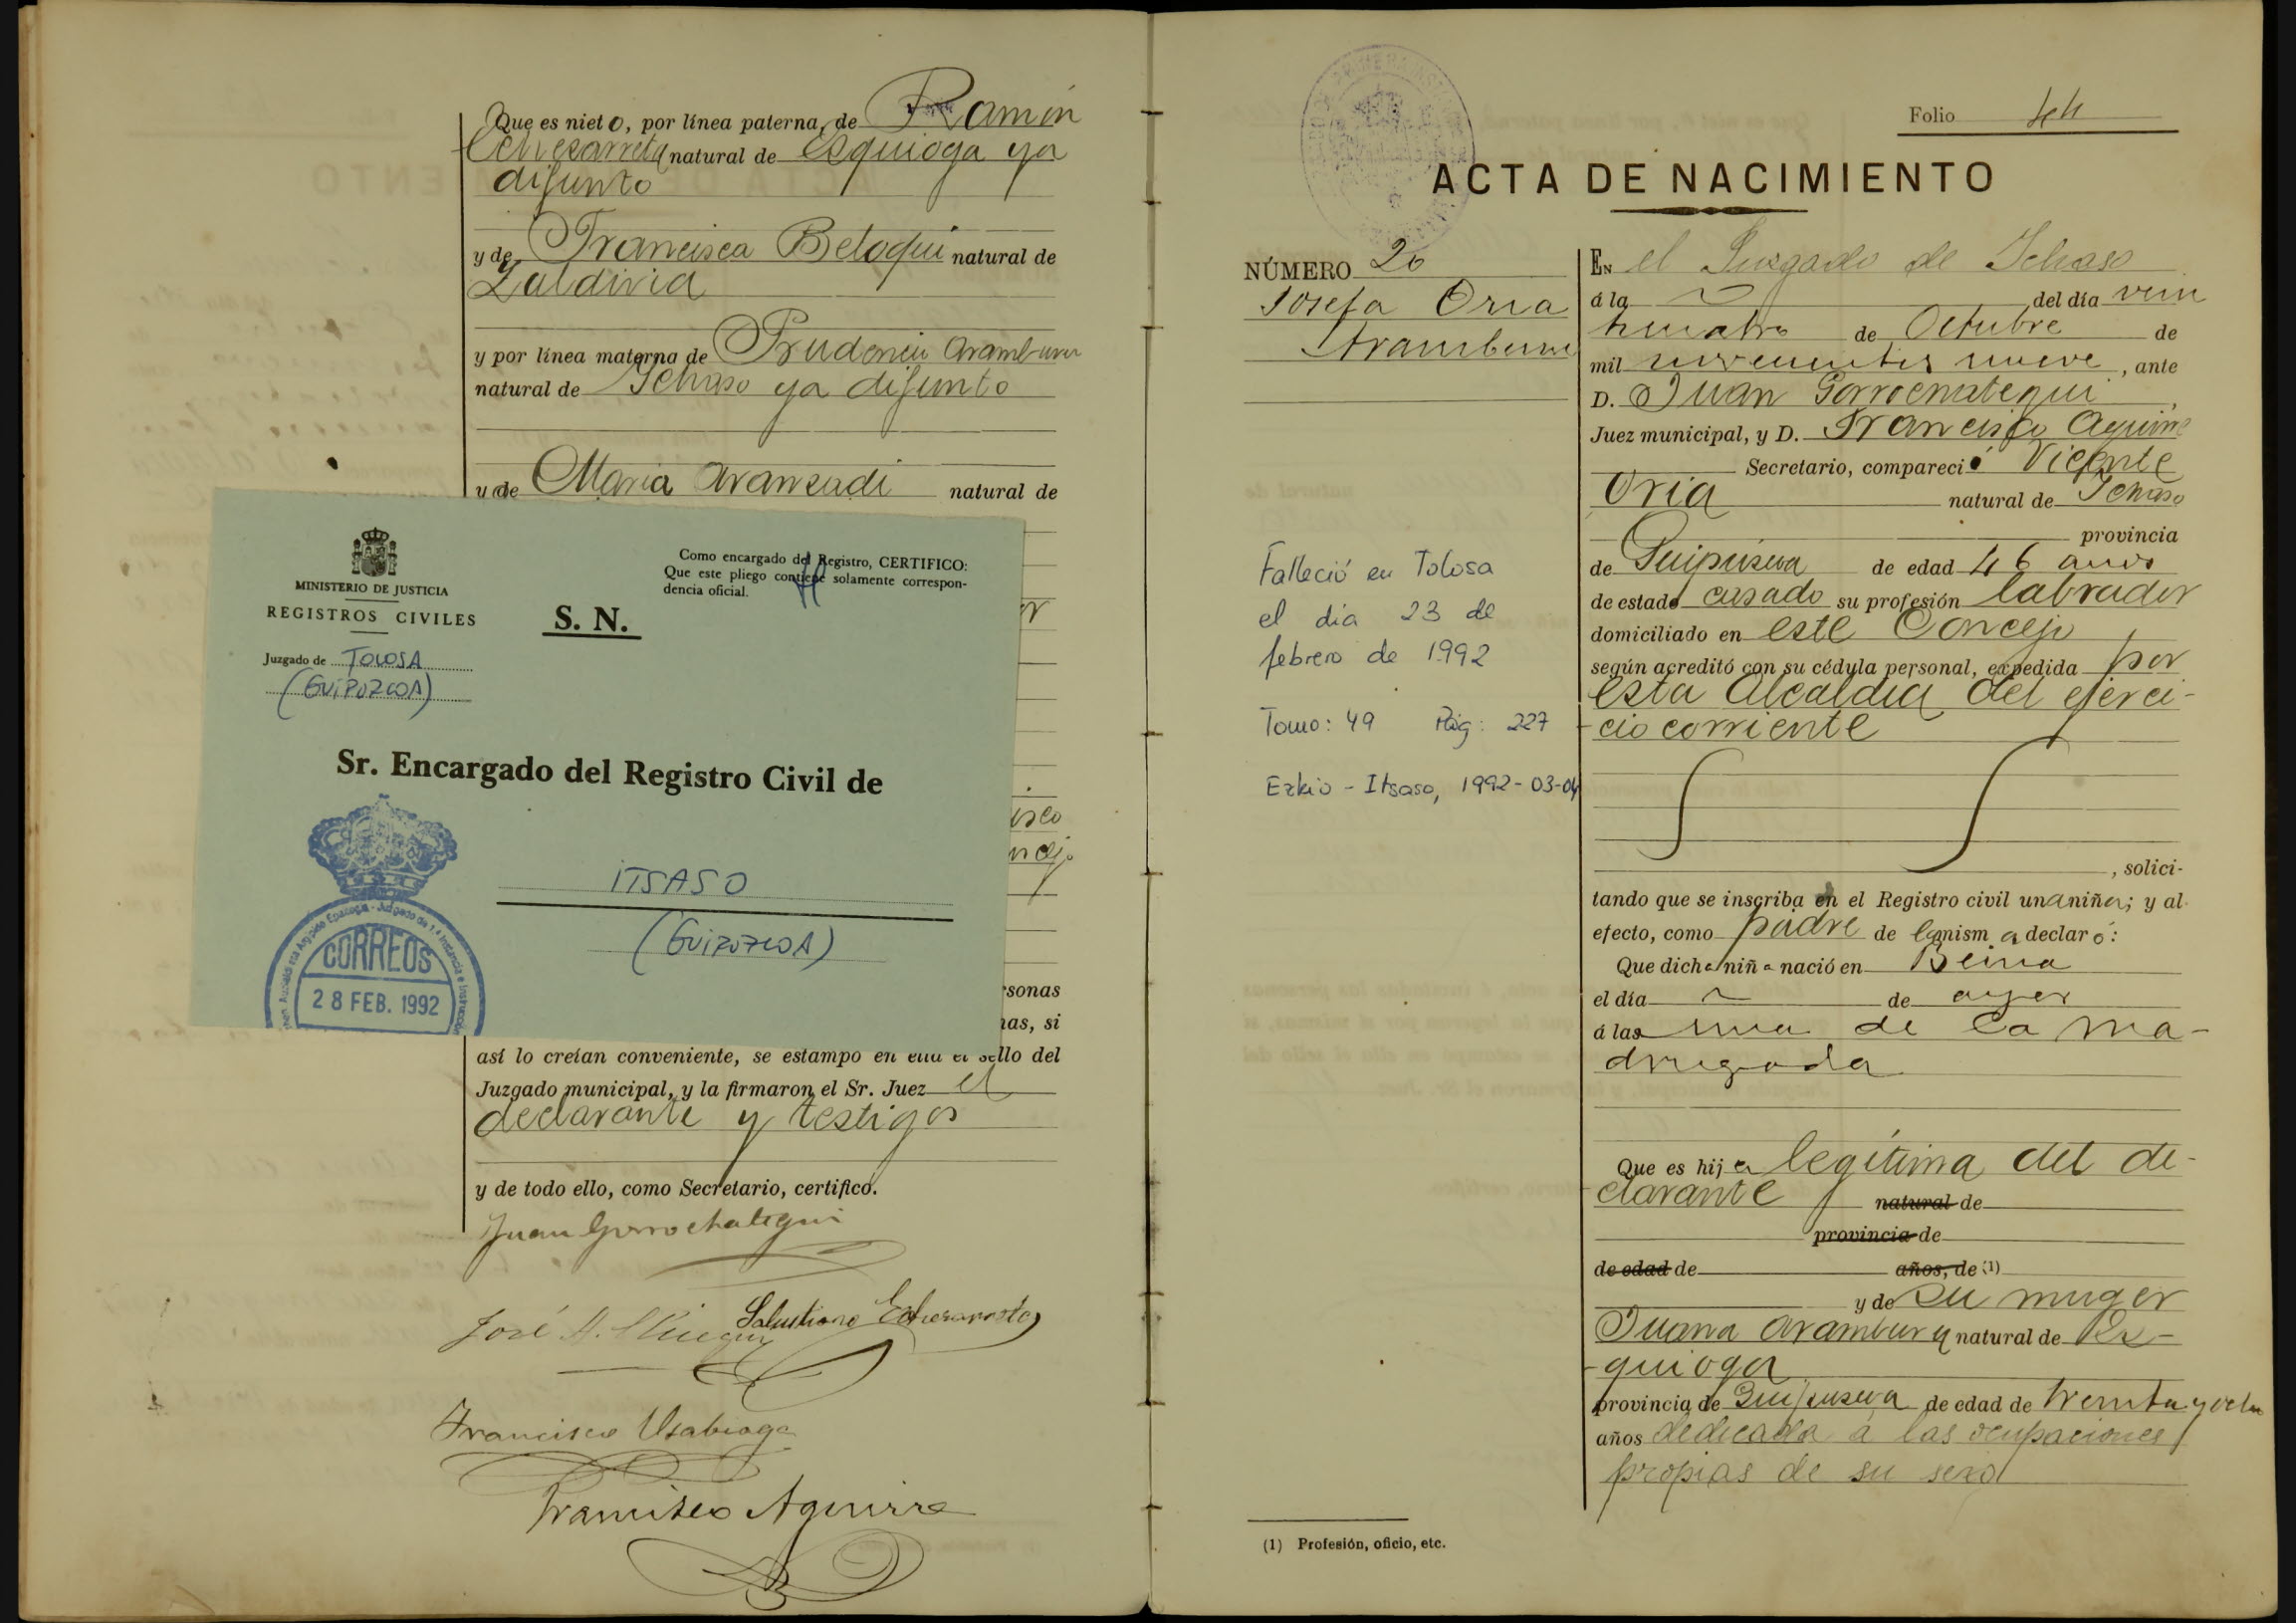 Que es nieto, por línea paterna, de Ramón
Echezarreta natural de Esquioga ya
difunto
y de Francisca Beloqui natural de
Zaldivia
y por línea materna de Prudencio Aramburu
natural de Ichaso ya difunto
y de Maria Aranzadi natural de
MINISTERIO DE JUSTICIA
REGISTROS CIVILES
Juzgado de TOLOSA
(GUIPUZCOA)
S. N.
Como encargado del Registro, CERTIFICO:
Que este pliego contiene solamente correspon-
dencia oficial.
Sr. Encargado del Registro Civil de
ITSASO
(GUIPUZCOA)
CORREOS
28 FEB. 1992
isco
ncejo
sonas
nas, si
así lo creían conveniente, se estampó en ella el sello del
Juzgado municipal, y la firmaron el Sr. Juez el
declarante y testigos
y de todo ello, como Secretario, certifico.
Juan Gorrochategui
José A.
Salustiano Echezarreta
Francisco Usabiaga
Francisco Aguirre
Folio 44
ACTA DE NACIMIENTO
NÚMERO 20
Josefa Oria
Aramburu
Falleció en Tolosa
el día 23 de
febrero de 1992
Tomo: 49 Pág: 227
Ezkio - Itsaso, 1992-03-04
En el Juzgado de Ichaso
á la del día vein
ticuatro de Octubre de
mil novecientos nueve, ante
D. Juan Gorrochategui,
Juez municipal, y D. Francisco Aguirre
Secretario, compareció Vicente
Oria natural de Ichaso
provincia
de Guipúzcoa de edad 46 años
de estado casado su profesión labrador
domiciliado en este Concejo
según acreditó con su cédula personal, expedida por
esta Alcaldía del ejerci-
cio corriente
, solici-
tando que se inscriba en el Registro civil una niña; y al
efecto, como padre de la misma declaró:
Que dicha niña nació en
el día de ayer
á las una de la ma-
drugada
Que es hija legítima del de-
clarante natural de
provincia de
de edad de años, de (1)
y de su muger
Juana Aramburu natural de Es-
quioga
provincia de Guipuzcoa de edad de treinta y ocho
años dedicada á las ocupaciones
propias de su sexo
(1) Profesión, oficio, etc.